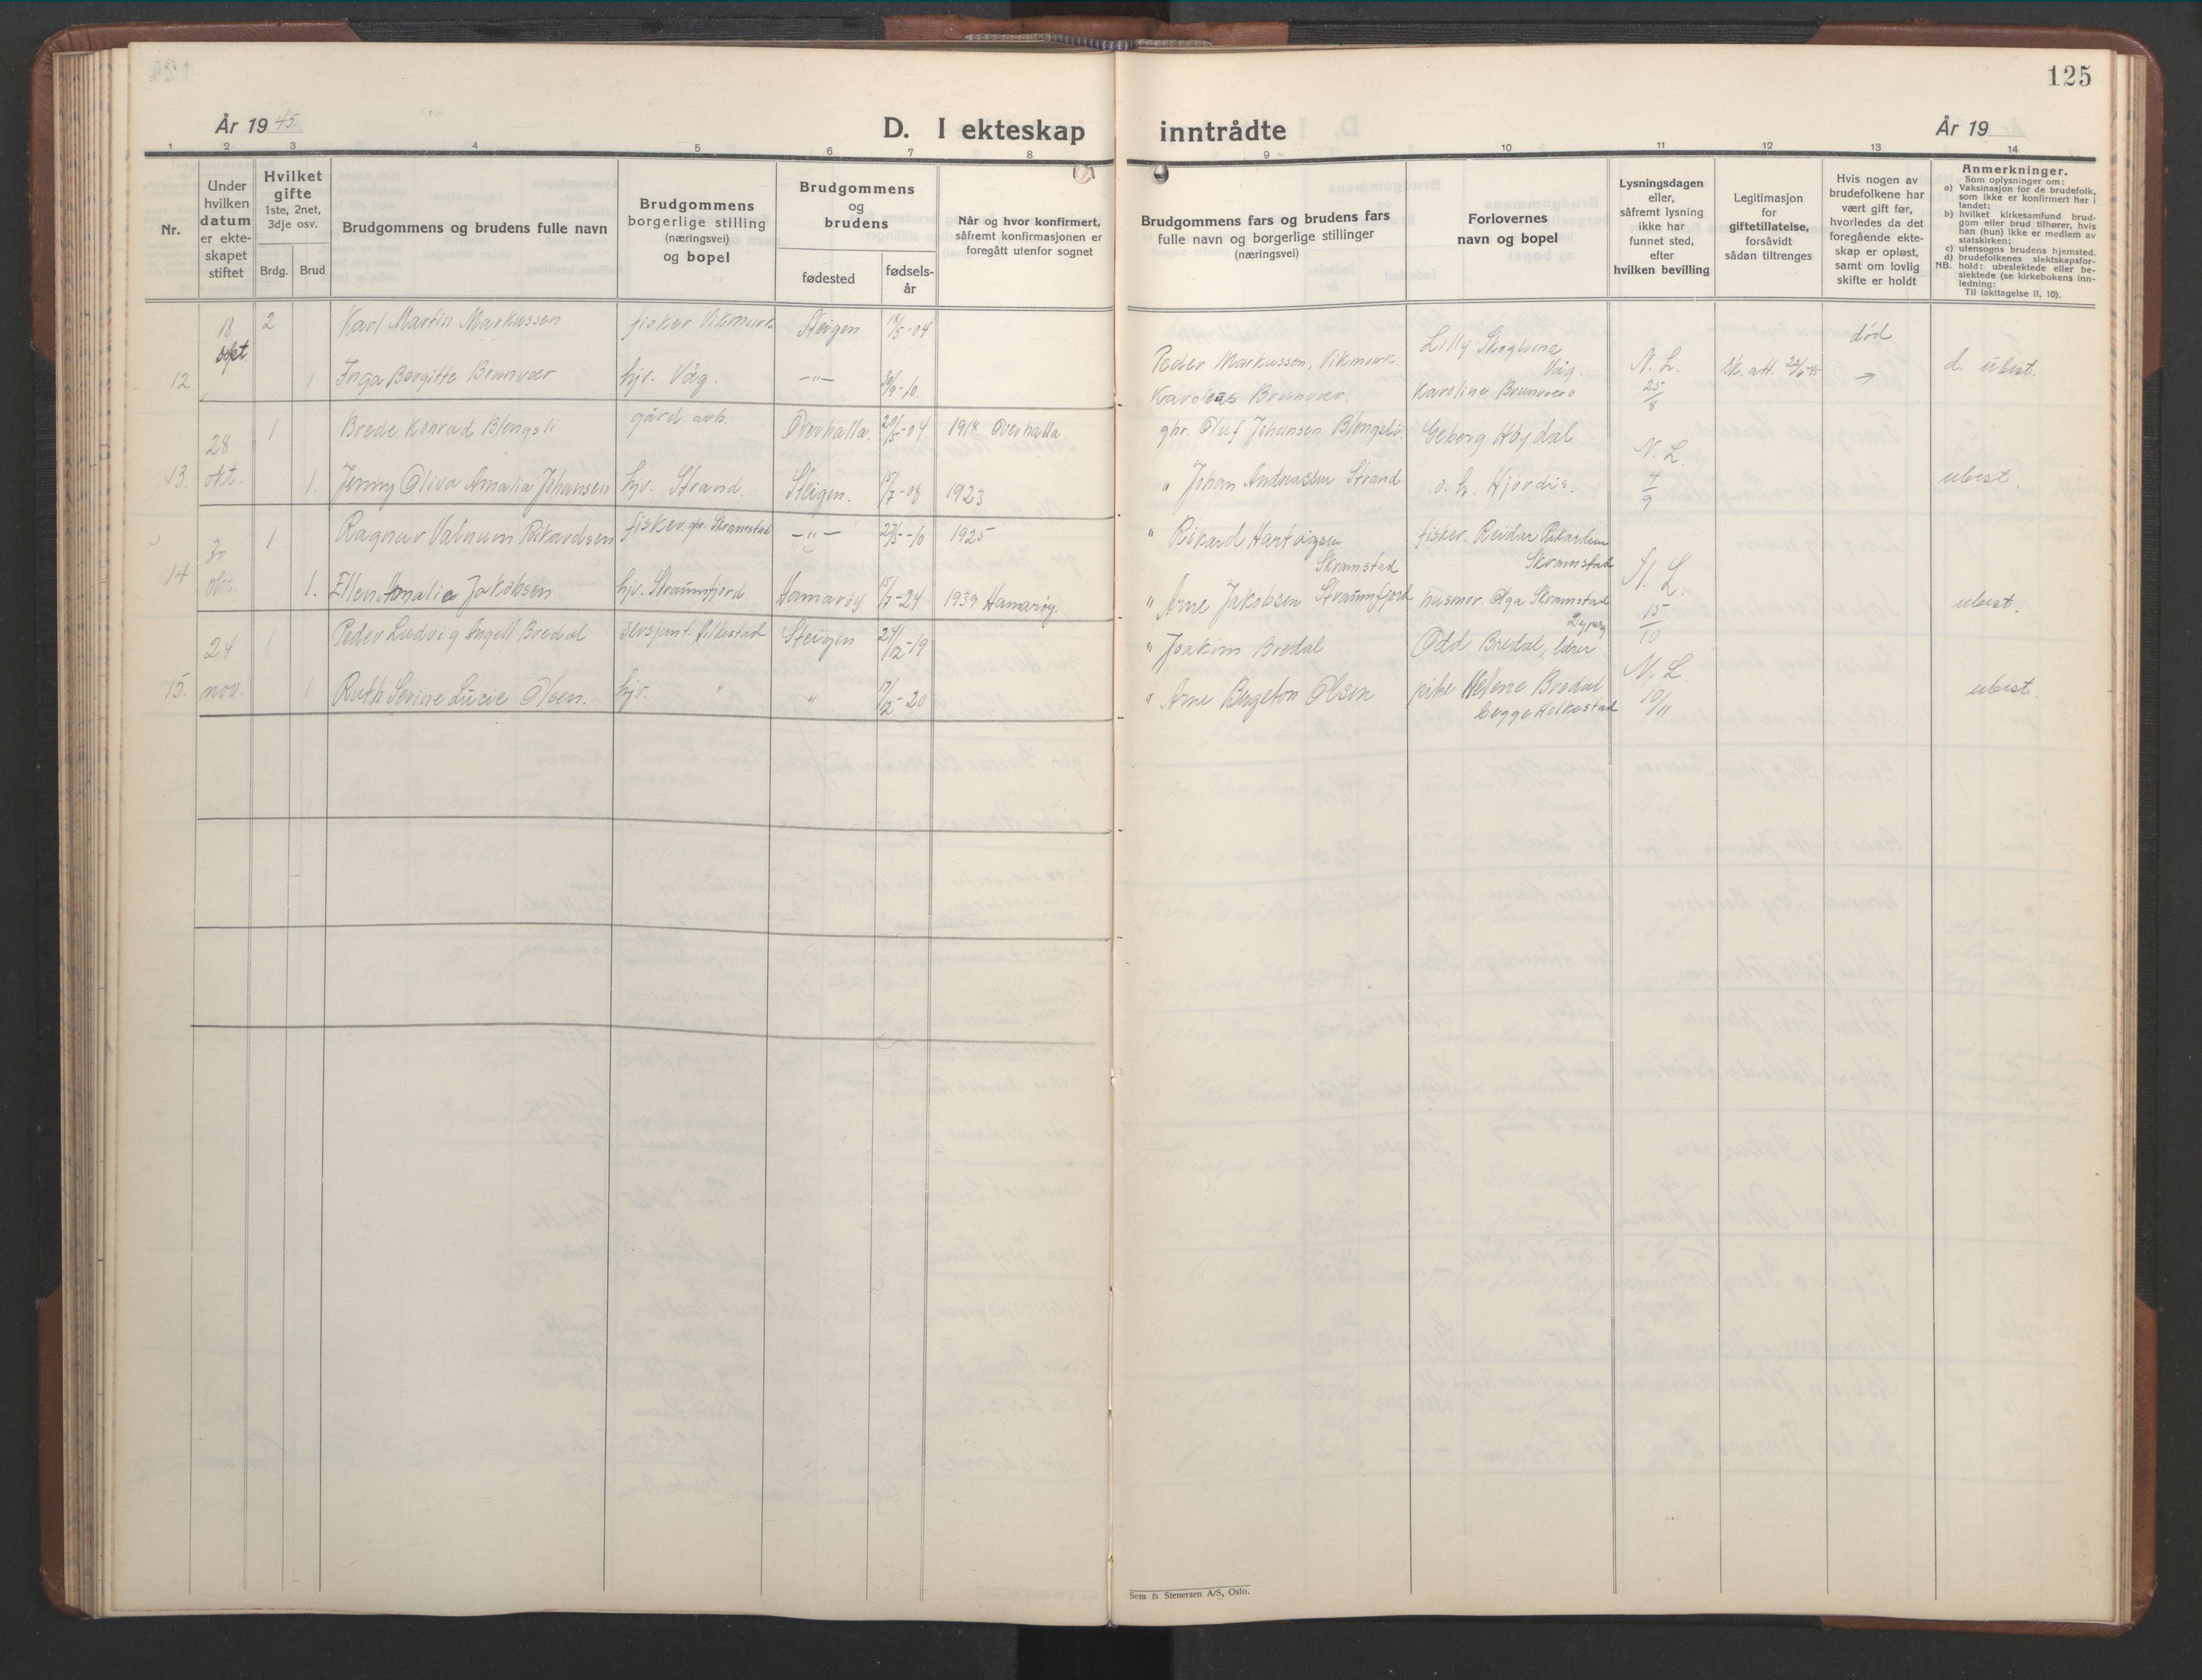 125
År 1945.
D. I ekteskap inntrådte
År 19
1 2 3 4 5 6 7 8 9 10 11 12 13 14
Nr.
Under
hvilken
datum
er ekte-
skapet
stiftet
Hvilket
gifte
1ste, 2net,
3dje osv.
Brdg. Brud
Brudgommens og brudens fulle navn
Brudgommens
borgerlige stilling
(næringsvei)
og bopel
Brudgommens
og
brudens
fødested
fødsels-
år
Når og hvor konfirmert,
såfremt konfirmasjonen er
foregått utenfor sognet
Brudgommens fars og brudens fars
fulle navn og borgerlige stillinger
(næringsvei)
Forlovernes
navn og bopel
Lysningsdagen
eller,
såfremt lysning
ikke har
funnet sted,
efter
hvilken bevilling
Legitimasjon
for
giftetillatelse,
forsåvidt
sådan tiltrenges
Hvis nogen av
brudefolkene har
vært gift før,
hvorledes da det
foregående ekte-
skap er opløst,
samt om lovlig
skifte er holdt
Anmerkninger.
Som oplysninger om:
a) Vaksinasjon for de brudefolk,
som ikke er konfirmert her i
landet;
b) hvilket kirkesamfund brud-
gom eller brud tilhører, hvis
han (hun) ikke er medlem av
statskirken;
c) utensogns brudens hjemsted.
d) brudefolkenes slektskapsfor-
NB. hold: ubeslektede eller be-
slektede (se kirkebokens inn-
ledning:
Til iakttagelse II. 10).
18 2 Karl Martin Markussen fisker Vikmark Steigen 18/5-04
sept
Peder Markussen, Vikmark. Lilly Skoglund Våg. død
12 1 Inga Bergitte Brunvær hjv. Våg. -"- /9-10.
Brunvær. Karoline Brunvær N. L. 25/8 Sk. att. d. ubesl.
28 1 Brede Konrad Blengsli gård. arb. Overhalla. 20/5-04 1918 Overhalla
gbr. Oluf Johansen Blengsli. Høydal
13. okt. 1. Jenny Oliva Amalia Johansen hjv. Strand. Steigen. 15/7-08 1923
" Johan Andreassen Strand o. h. Hjørdis. N. L. 4/9 ubesl.
1 Ragnar Valnum Rikardsen fisker. gbr. Skramstad -"- 27/5-10 1925
" Rikard Hartvigsen Skramstad fisker. Reidar Rikardsen Skramstad
14 okt. 1. Ellen Amalie Jakobsen hjv. Straumfjord Hamarøy 15/7-24 1939 Hamarøy.
" Arne Jakobsen Straumfjord husmor. Olga Skramstad N. L. 15/10 ubesl.
24 1 Peder Ludvig Angell Bredal sersjant. Steigen 24/12-19
" Joakim Bredal Odd Bredal, lærer
15. nov. 1 Ruth Serine Lucie Olsen. hjv. " " 17/2-20
" Arne Olsen pike Helene Bredal begge Holkestad N. L. 10/11 ubesl.
Sem & Stenersen A/S, Oslo.